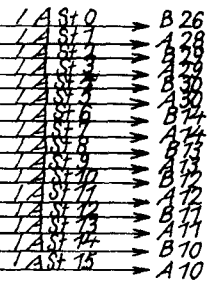 1 A St 0 B 26
1 A St 1 A 28
1 A St 2 B 29
1 A St 3 A 29
1 A St B 30
1 A St 5 A 30
1 A St 6 B 14
1 A St 7 A 14
1 A St 8 B 13
1 A St 9 A 13
1 A St 10 B 12
1 A St 11 A 12
1 A St 12 B 11
1 A St 13 A 11
1 A St 14 B 10
1 A St 15 A 10